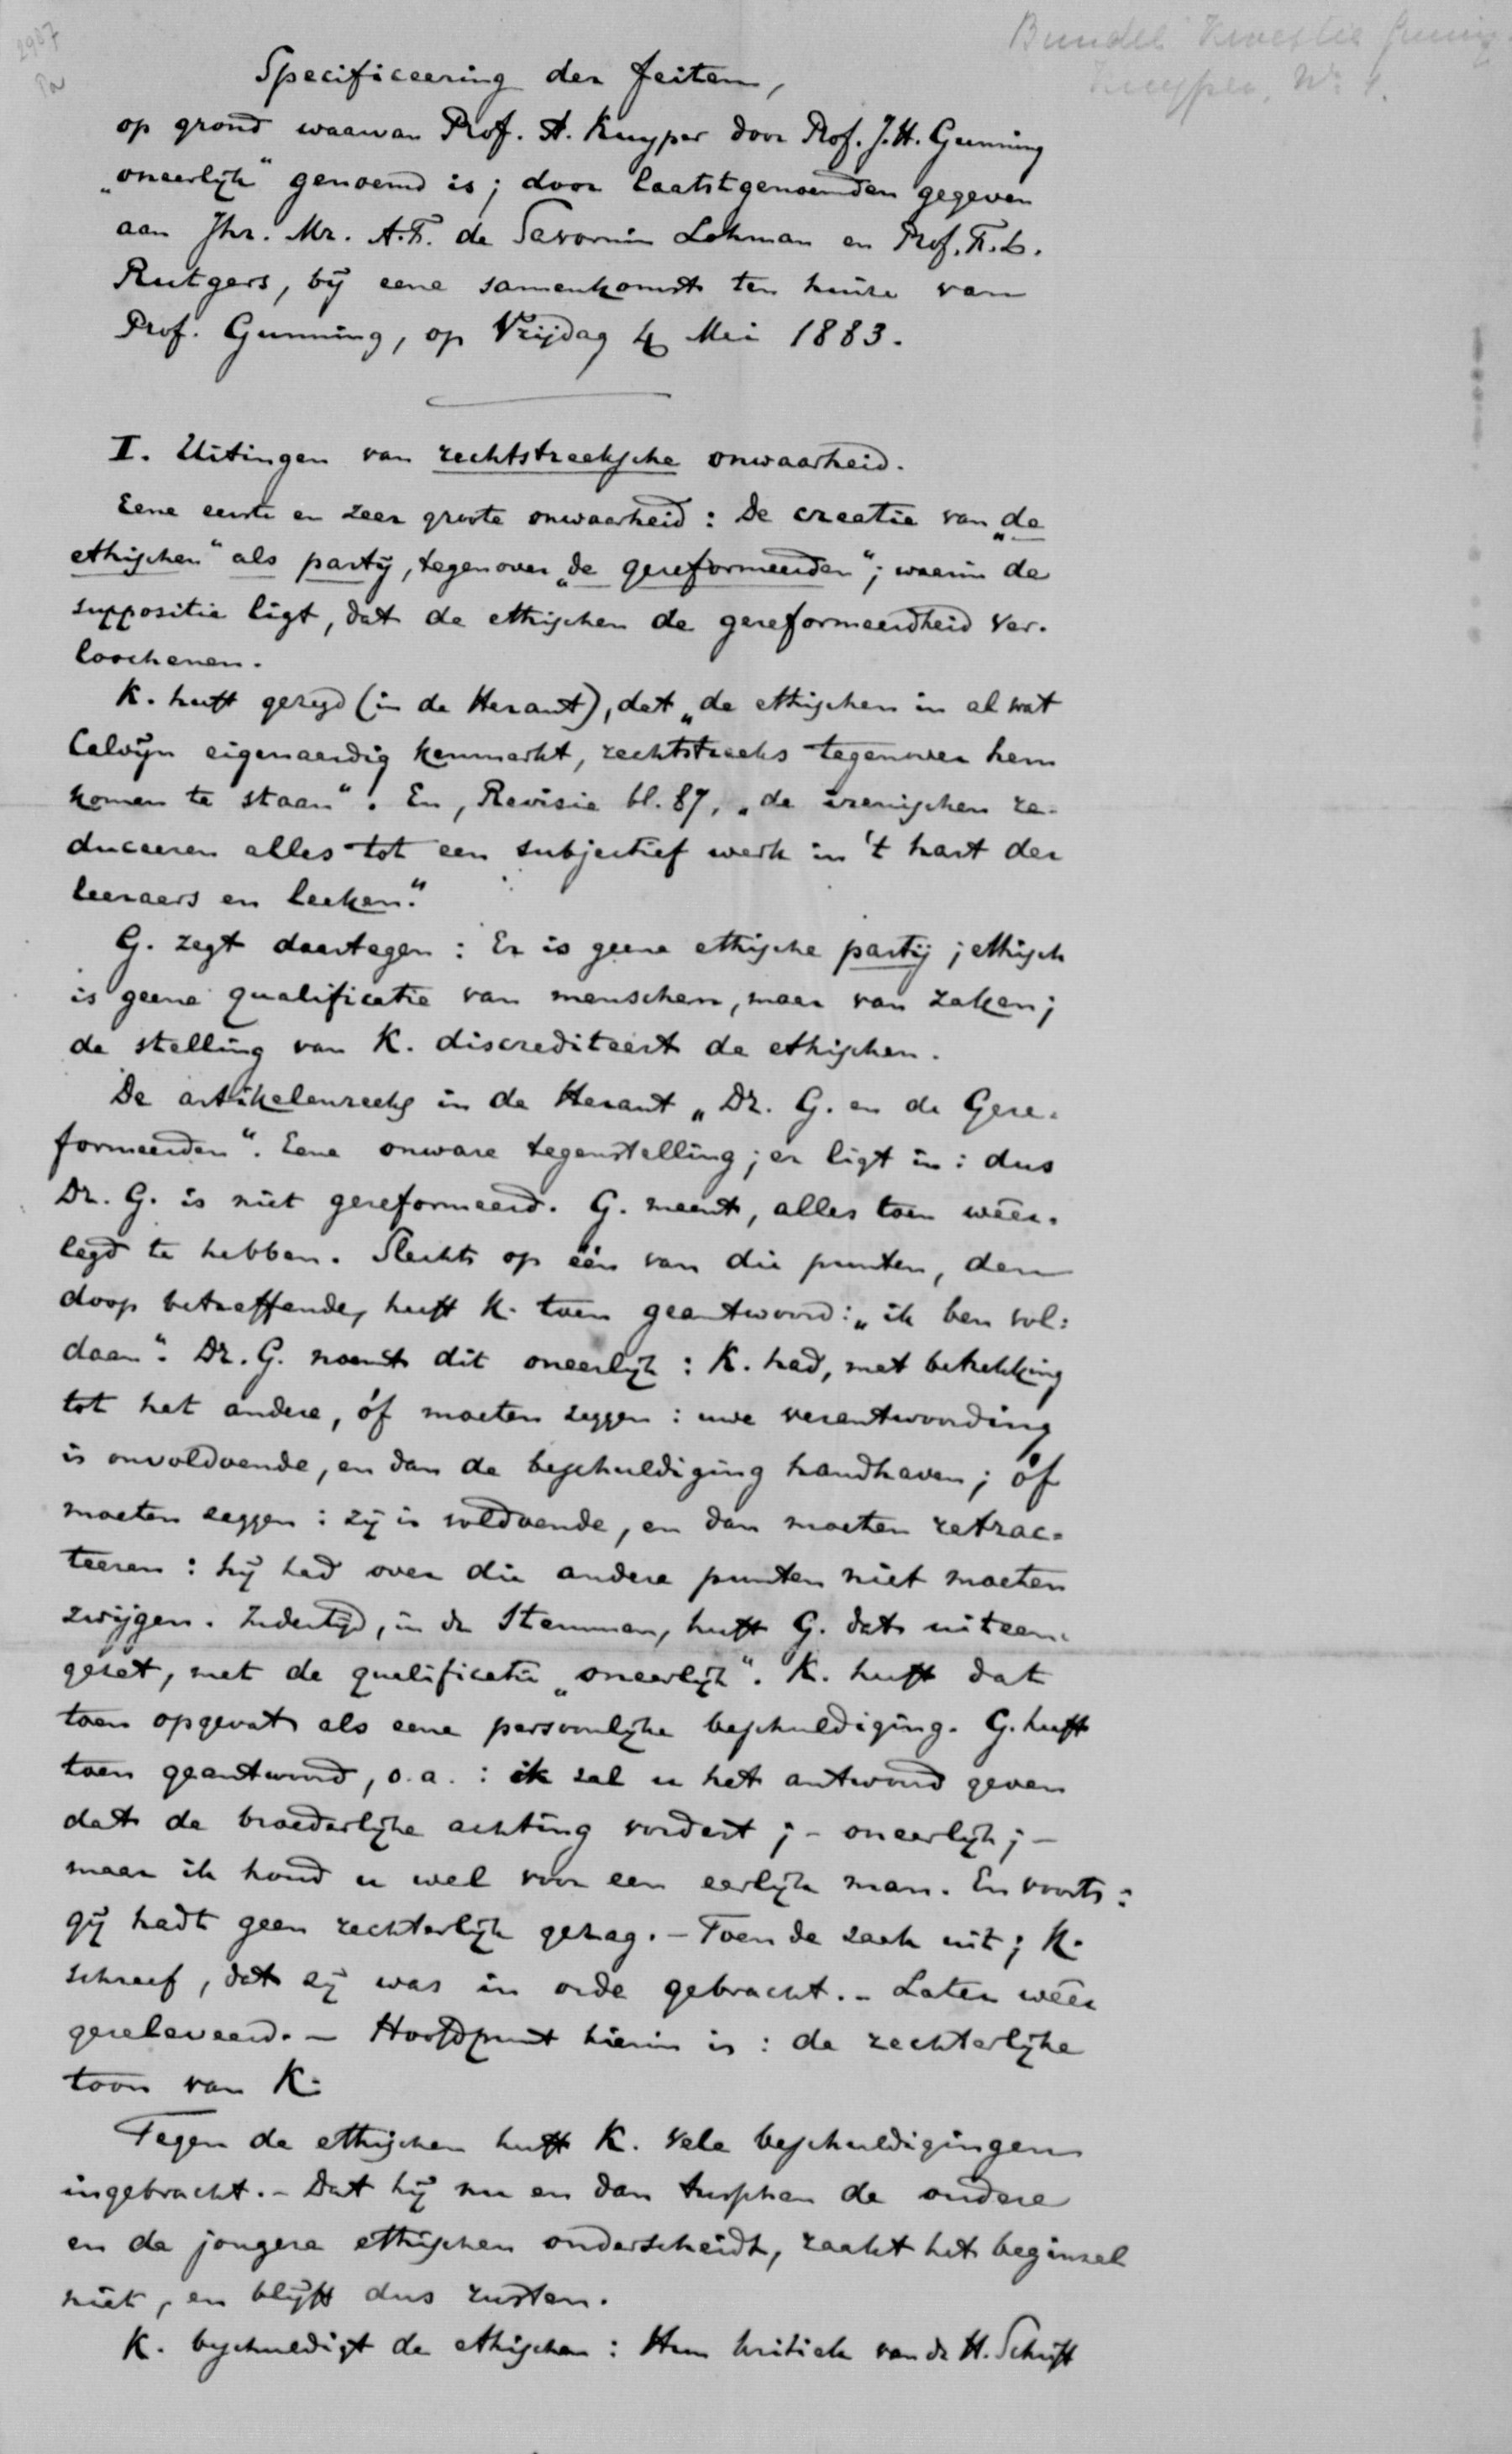 2987
Pa
Bundel Kwestie Gunning
Kuyper, No. 1.
Specificeering der feiten,
op grond waarvan Prof. A. Kuyper door Prof. J.H. Gunning
„oneerlijk“ genoemd is; door laatstgenoemden gegeven
aan Jhr. Mr. A.F. de Savornin Lohman en Prof. F.L.
Rutgers, bij eene samenkomst ten huize van
Prof. Gunning, op Vrijdag 4 Mei 1883.
I. Uitingen van rechtstreeksche onwaarheid.
Eene eerste en zeer groote onwaarheid: De creatie van „de
ethischen“ als partij, tegenover „de gereformeerden“; waarin de
suppositie ligt, dat de ethischen de gereformeerdheid ver-
loochenen.
K. heeft gezegd (in de Heraut), dat „de ethischen in al wat
Calvijn eigenaardig kenmerkt, rechtstreeks tegenover hem
komen te staan“. En, Revisie bl. 87, „de irenischen re-
duceeren alles tot een subjectief werk in 't hart der
leeraars en leeken.“
G. zegt daartegen: Er is geene ethische partij; ethisch
is geene qualificatie van menschen, maar van zaken;
de stelling van K. discrediteert de ethischen.
De artikelenreeks in de Heraut „Dr. G. en de Gere-
formeerden“. Eene onware tegenstelling; er ligt in: dus
Dr. G. is niet gereformeerd. G. meent, alles toen wêer-
legd te hebben. Slechts op één van die punten, den
doop betreffende, heeft K. toen geantwoord: „ik ben vol-
daan“. Dr. G. noemt dit oneerlijk: K. had, met betrekking
tot het andere, óf moeten zeggen: uwe verantwoording
is onvoldoende, en dan de beschuldiging handhaven; óf
moeten zeggen: zij is voldoende, en dan moeten retrac-
teeren: hij had over die andere punten niet moeten
zwijgen. Indertijd, in de Stemmen, heeft G. dat uiteen-
gezet, met de qualificatie „oneerlijk“. K. heeft dat
toen opgevat als eene persoonlijke beschuldiging. G. heeft
toen geantwoord, o.a.: ik zal u het antwoord geven
dat de broederlijke achting vordert; – oneerlijk; –
maar ik houd u wel voor een eerlijk man. En voorts:
gij hadt geen rechterlijk gezag. – Toen de zaak uit; K.
schreef, dat zij was in orde gebracht. – Later wêer
gereleveerd. – Hoofdpunt hierin is: de rechterlijke
toon van K.
Tegen de ethischen heeft K. vele beschuldigingen
ingebracht. – Dat hij nu en dan tusschen de oudere
en de jongere ethischen onderscheidt, raakt het beginsel
niet, en blijft dus rusten.
K. beschuldigt de ethischen: Hun kritiek van de H. Schrift